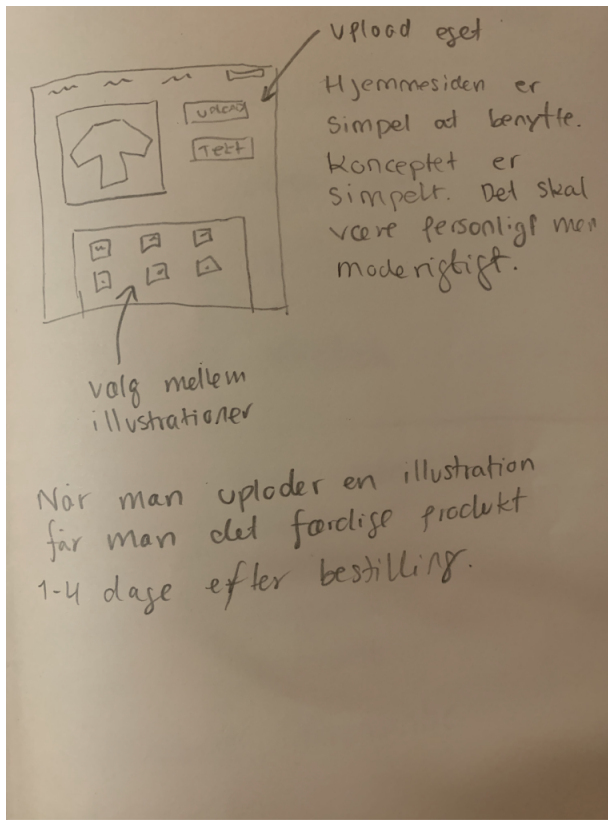 Upload eget
Upload
Tekt
Hjemmesiden er
simpel at benytte.
Konceptet er
simpelt. Det skal
være personligt men
moderigtigt.
valg mellem
illustrationer
Når man uploder en illustration
får man det færdige produkt
1-4 dage efter bestilling.